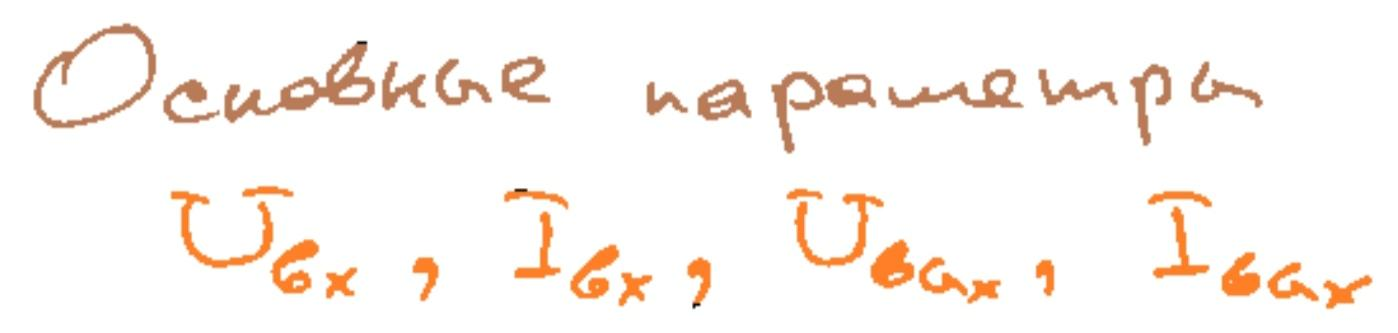 Основные параметры
Uвх, Iвх, Uвых, Iвых